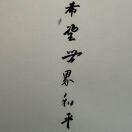 希望世界和平